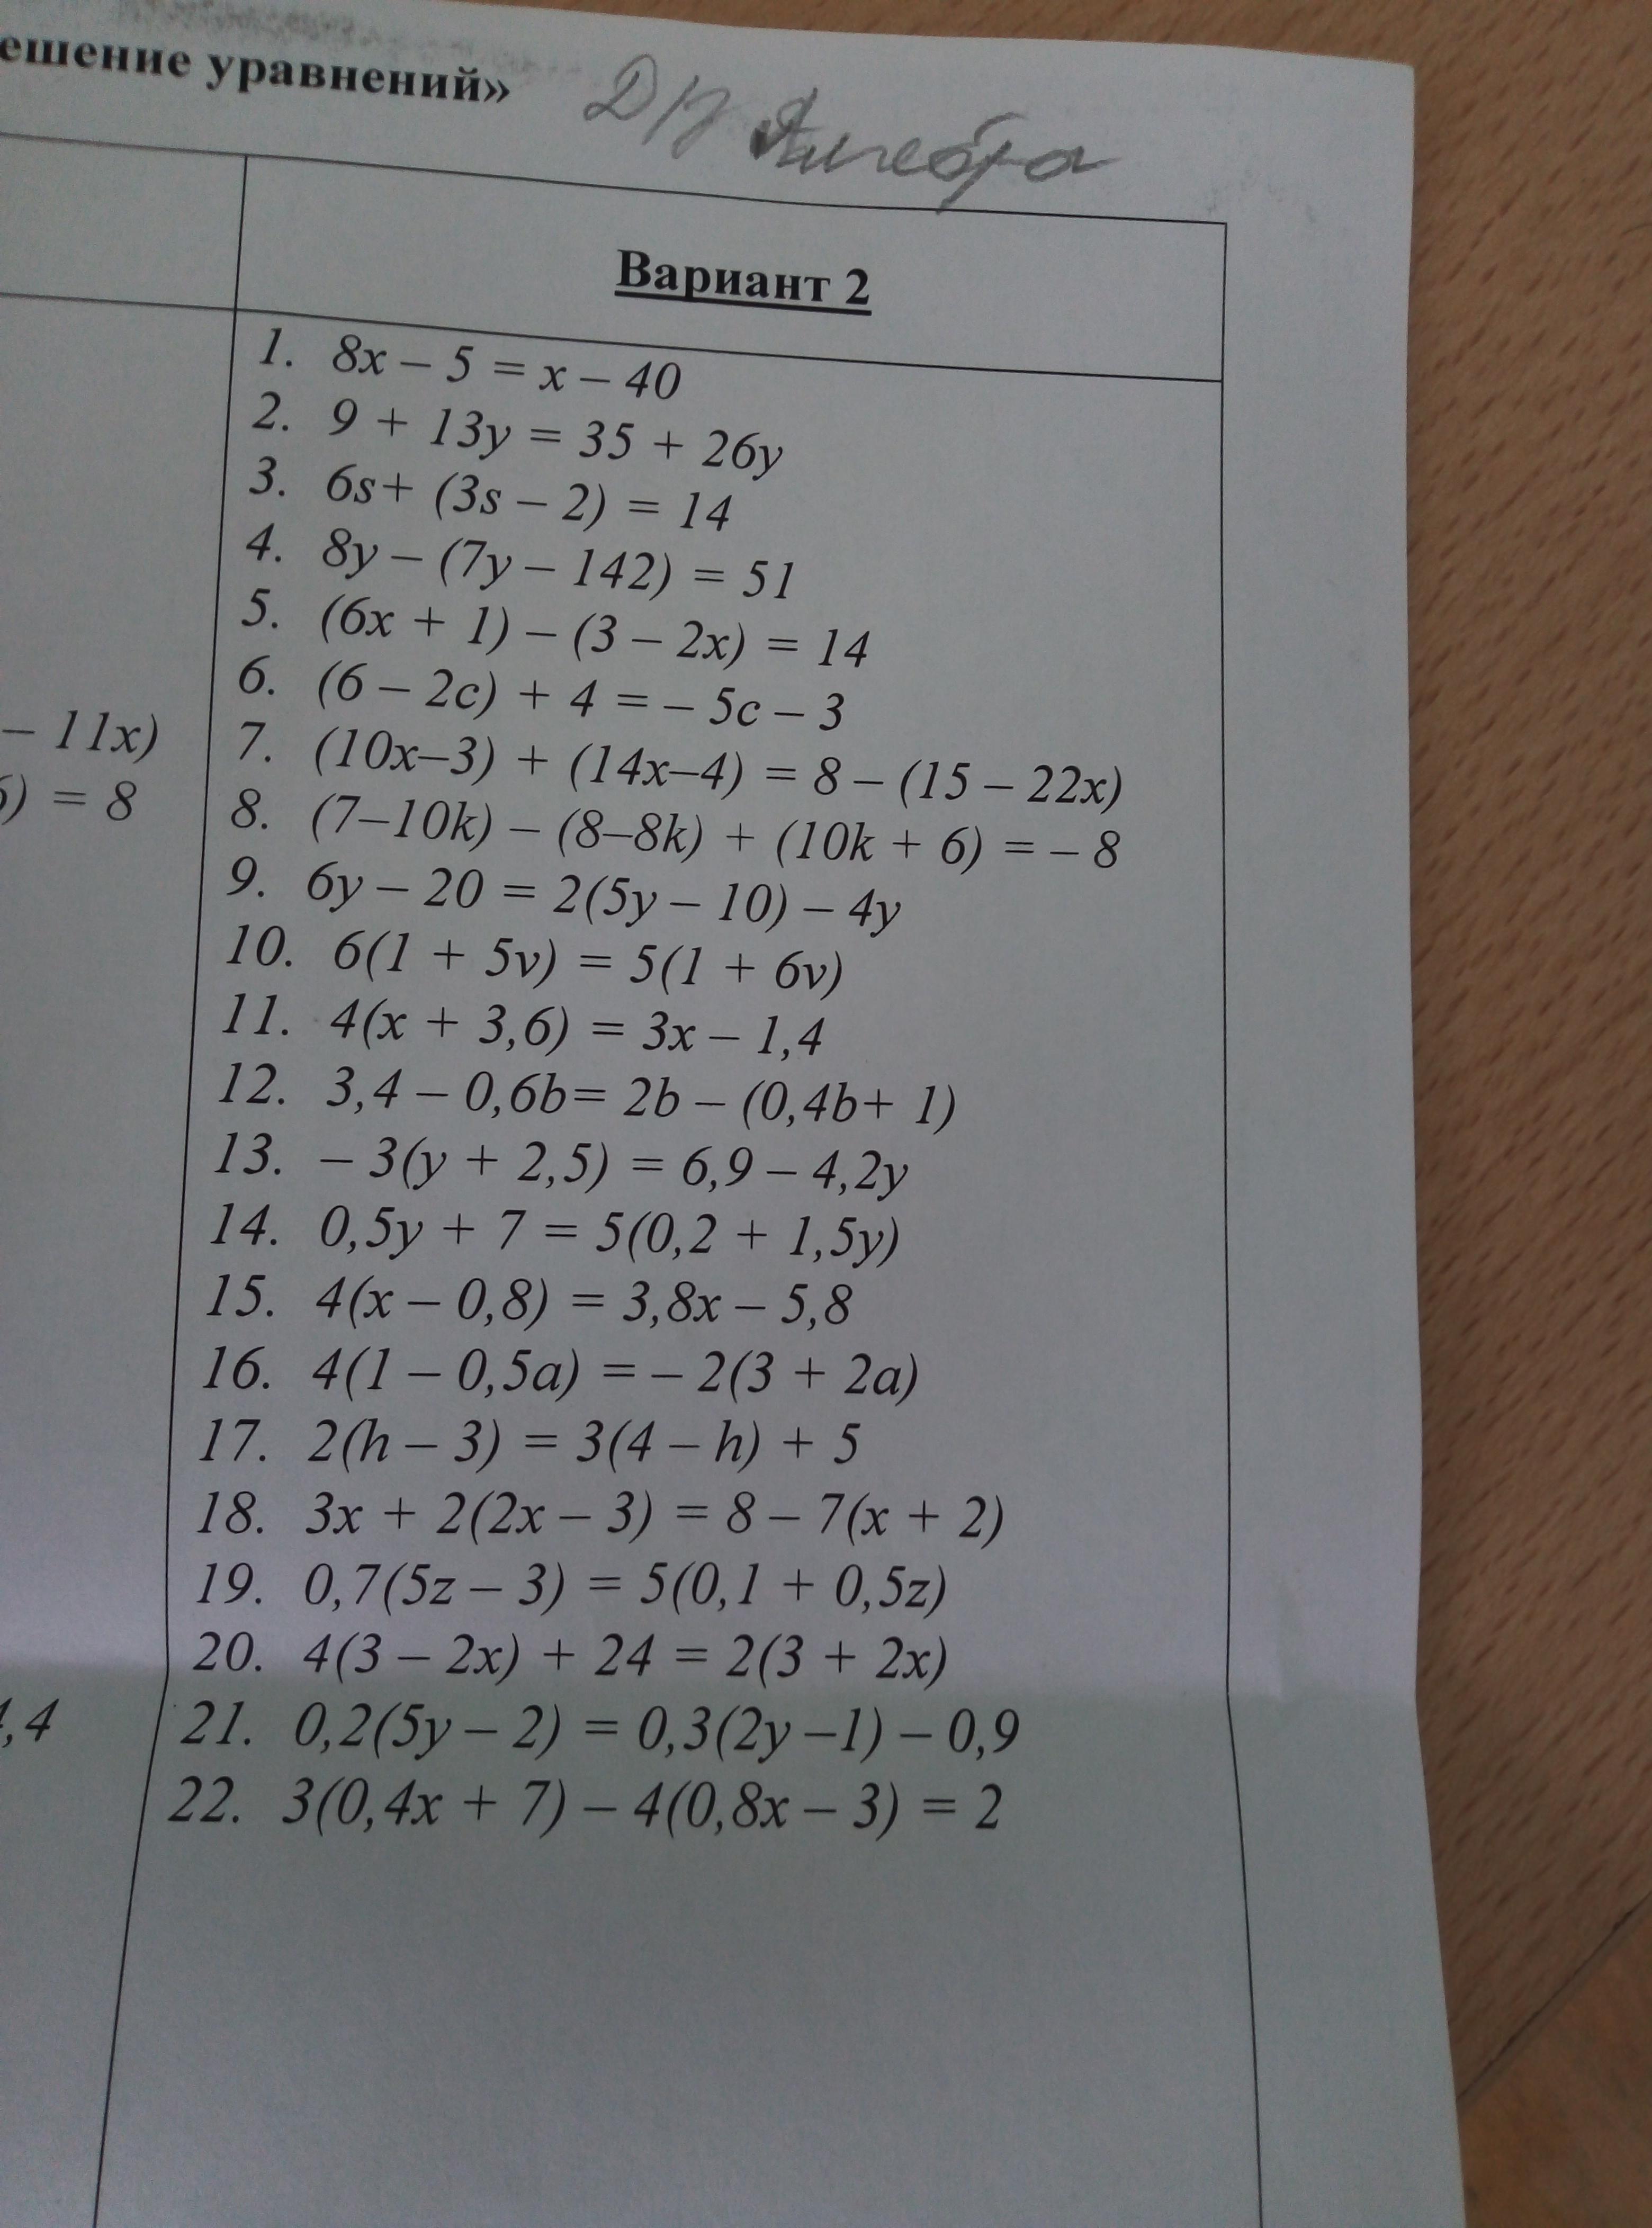 ешение уравнений»
Алгебра
Вариант 2
1. 8x – 5 = x – 40
2. 9 + 13y = 35 + 26y
3. 6s+ (3s – 2) = 14
4. 8y – (7y – 142) = 51
5. (6x + 1) – (3 – 2x) = 14
6. (6 – 2c) + 4 = – 5c – 3
– 11x)
7. (10x–3) + (14x–4) = 8 – (15 – 22x)
) = 8
8. (7–10k) – (8–8k) + (10k + 6) = – 8
9. 6y – 20 = 2(5y – 10) – 4y
10. 6(1 + 5v) = 5(1 + 6v)
11. 4(x + 3,6) = 3x – 1,4
12. 3,4 – 0,6b= 2b – (0,4b+ 1)
13. – 3(y + 2,5) = 6,9 – 4,2y
14. 0,5y + 7 = 5(0,2 + 1,5y)
15. 4(x – 0,8) = 3,8x – 5,8
16. 4(1 – 0,5a) = – 2(3 + 2a)
17. 2(h – 3) = 3(4 – h) + 5
18. 3x + 2(2x – 3) = 8 – 7(x + 2)
19. 0,7(5z – 3) = 5(0,1 + 0,5z)
20. 4(3 – 2x) + 24 = 2(3 + 2x)
,4
21. 0,2(5y – 2) = 0,3(2y –1) – 0,9
22. 3(0,4x + 7) – 4(0,8x – 3) = 2